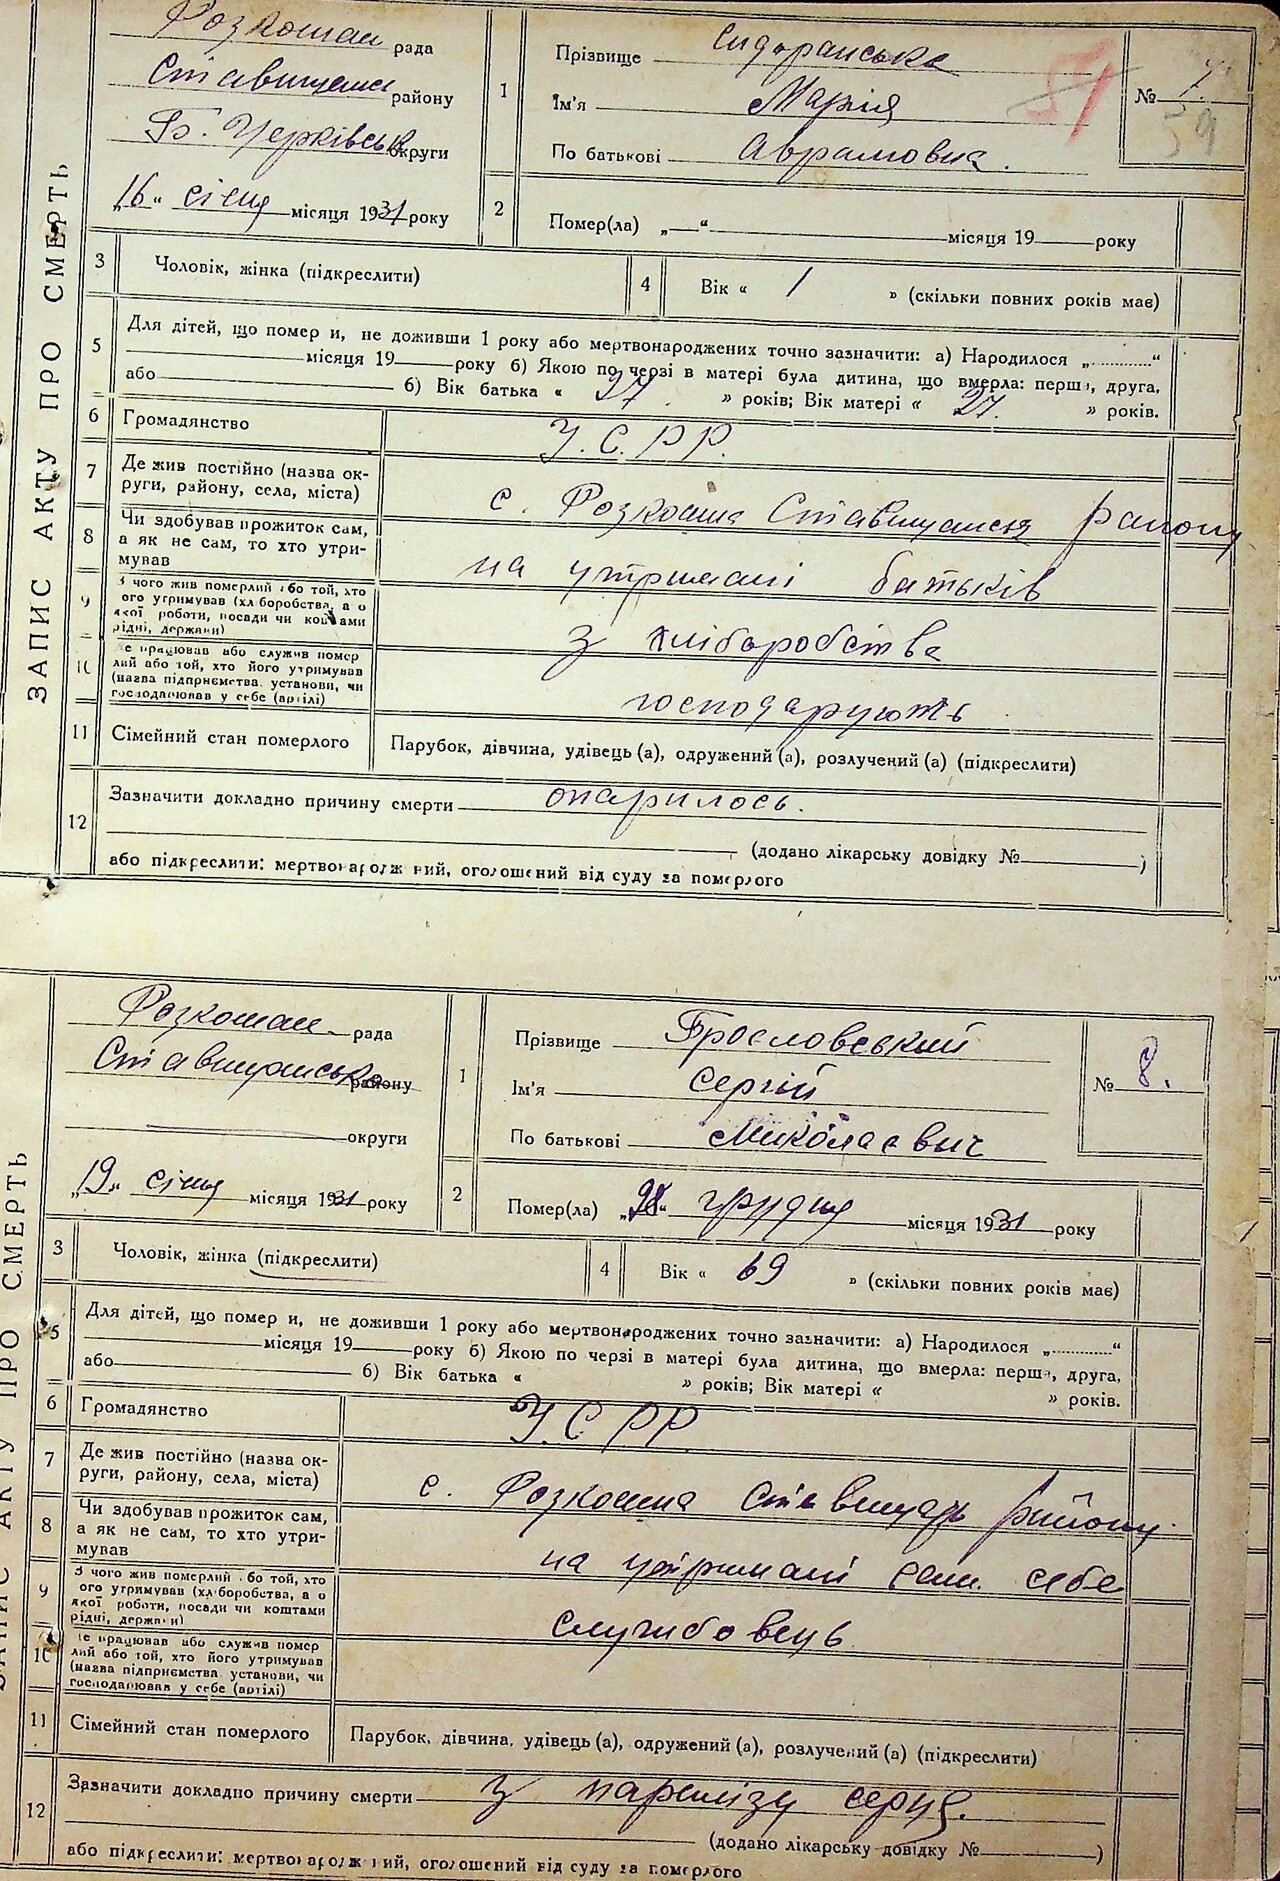 ЗАПИС АКТУ ПРО СМЕРТЬ
Розкошан рада
Ставищанс району
Б. Церківськ округи
„16“ січня місяця 1931 року
1
Прізвище Сидоранська
Ім'я Марія
По батькові Аврамовна.
№ 7.
51
39
2
Помер(ла) „ “ місяця 19 року
3
Чоловік, жінка (підкреслити)
4
Вік « 1 » (скільки повних років має)
5
Для дітей, що помер и, не доживши 1 року або мертвонароджених точно зазначити: а) Народилося „..........“
місяця 19 року б) Якою по черзі в матері була дитина, що вмерла: перша, друга,
або б) Вік батька « 27. » років; Вік матері « 27. » років.
6
Громадянство
У.С.РР.
7
Де жив постійно (назва ок-
руги, району, села, міста)
с. Розкошна Ставищанся району
8
Чи здобував прожиток сам,
а як не сам, то хто утри-
мував
на утримані батьків
9
З чого жив померлий або той, хто
його утримував (хліборобства, а о
якої роботи, посади чи коштами
рідні, держави)
з хліборобства
10
Де працював або служив помер
лий або той, хто його утримував
(назва підприємства, установи, чи
господарював у себе (артілі)
господарують
11
Сімейний стан померлого
Парубок, дівчина, удівець (а), одружений (а), розлучений (а) (підкреслити)
12
Зазначити докладно причину смерти опарилось.
(додано лікарську довідку № )
або підкреслити: мертвонароджений, оголошений від суду за померлого
ЗАПИС АКТУ ПРО СМЕРТЬ
Розкошан рада
Ставищанська району
округи
„19“ січня місяця 1931 року
1
Прізвище Брословський
Ім'я Сергій
По батькові Миколаєвич
№ 8.
2
Помер(ла) „28“ грудня місяця 1931 року
3
Чоловік, жінка (підкреслити)
4
Вік « 69 » (скільки повних років має)
5
Для дітей, що помер и, не доживши 1 року або мертвонароджених точно зазначити: а) Народилося „..........“
місяця 19 року б) Якою по черзі в матері була дитина, що вмерла: перша, друга,
або б) Вік батька « » років; Вік матері « » років.
6
Громадянство
У.С.РР
7
Де жив постійно (назва ок-
руги, району, села, міста)
с. Розкошна Ставищань району
8
Чи здобував прожиток сам,
а як не сам, то хто утри-
мував
на утримані сам себе
9
З чого жив померлий або той, хто
його утримував (хліборобства, а о
якої роботи, посади чи коштами
рідні, держави)
службовець
10
Де працював або служив помер
лий або той, хто його утримував
(назва підприємства, установи, чи
господарював у себе (артілі)
11
Сімейний стан померлого
Парубок, дівчина, удівець (а), одружений (а), розлучений (а) (підкреслити)
12
Зазначити докладно причину смерти з парилізу серця.
(додано лікарську довідку № )
або підкреслити: мертвонароджений, оголошений від суду за померлого